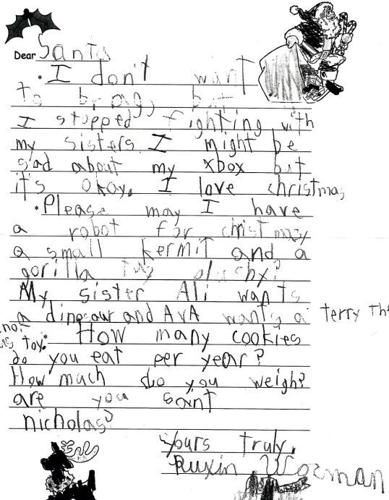 Dear Santa
• I don't want
to brag, but
I stopped fighting with
my sisters. I might be
sad about my xbox but
it's okay. I love christmas
• Please may I have
a robot for christmas
a small kermit and a
gorilla plushy?
My sister Ali wants
a dinosaur and AvA wants a terry the
toy. How many cookies
do you eat per year?
How much do you weigh?
are you saint
nicholas?
yours truly,
Ruxin